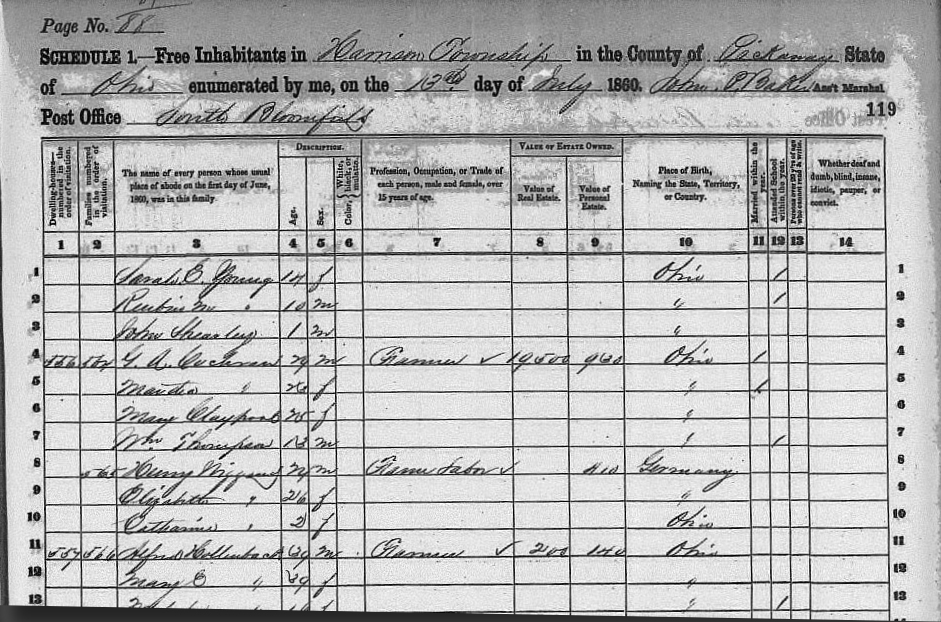 Page No. 88
SCHEDULE 1.—Free Inhabitants in Harrison Township in the County of Pickaway State
of Ohio enumerated by me, on the 13th day of July 1860. John P. Baker Ass't Marshal
Post Office South Bloomfield 119
Dwelling-houses—numbered in the order of visitation. Families numbered in the order of visitation. The name of every person whose usual place of abode on the first day of June, 1860, was in this family. DESCRIPTION. Age. Sex. Color, White, black, or mulatto. Profession, Occupation, or Trade of each person, male and female, over 15 years of age. VALUE OF ESTATE OWNED. Value of Real Estate. Value of Personal Estate. Place of Birth, Naming the State, Territory, or Country. Married within the year. Attended School within the year. Persons over 20 y'rs of age who cannot read & write. Whether deaf and dumb, blind, insane, idiotic, pauper, or convict.
1 2 3 4 5 6 7 8 9 10 11 12 13 14
1 Sarah E. Young 14 f Ohio 1 1
2 Reubin M " 10 m " 1 2
3 John 1 m " 3
4 G. A. Cochran 29 m Farmer 19500 930 Ohio 1 4
5 " f " 1 5
6 Mary Claypool 25 f " 6
7 Wm Thompson 13 m " 1 7
8 565 Henry 29 m Farm Labor 410 Germany 8
9 Elizabeth " 26 f " 9
10 Catharine " 2 f Ohio 10
11 557 566 Alfred Hollenback 39 m Farmer 200 140 Ohio 11
12 Mary E " 39 f " 12
13 " 1 13